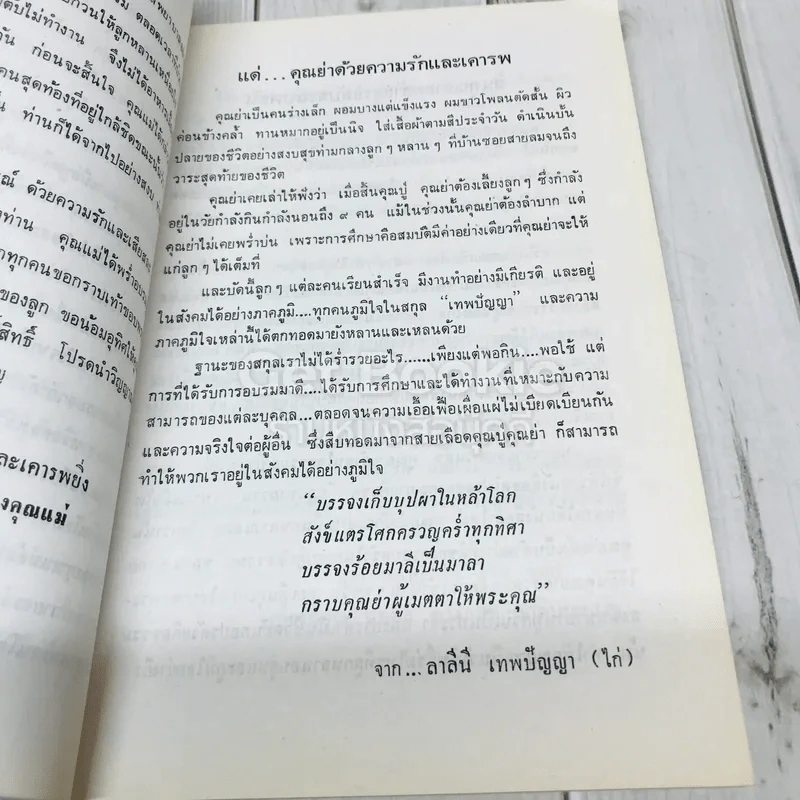 ดับไม่ทำงาน
ก่อนจะสิ้นใจ
คนสุดท้องที่อยู่ใกล้ชิดขณะนั้น
ท่านก็ได้จากไปอย่างสงบ
ด้วยความรักและเสียสละ
คุณแม่ได้พร่ำอบรม
ทุกคนขอกราบเท้าขอ
ของลูก ขอน้อมอุทิศให้
โปรดนำวิญญาณ
ละเคารพยิ่ง
งคุณแม่
แด่...คุณย่าด้วยความรักและเคารพ
คุณย่าเป็นคนร่างเล็ก ผอมบางแต่แข็งแรง ผมขาวโพลนตัดสั้น ผิว
ค่อนข้างคล้ำ ทานหมากอยู่เป็นนิจ ใส่เสื้อผ้าตามสีประจำวัน ดำเนินบั้น
ปลายของชีวิตอย่างสงบสุขท่ามกลางลูกๆ หลานๆ ที่บ้านซอยสายลมจนถึง
วาระสุดท้ายของชีวิต
คุณย่าเคยเล่าให้ฟังว่า เมื่อสิ้นคุณปู่ คุณย่าต้องเลี้ยงลูกๆ ซึ่งกำลัง
อยู่ในวัยกำลังกินกำลังนอนถึง ๙ คน แม้ในช่วงนั้นคุณย่าต้องลำบาก แต่
คุณย่าไม่เคยพร่ำบ่น เพราะการศึกษาคือสมบัติมีค่าอย่างเดียวที่คุณย่าจะให้
แก่ลูกๆ ได้เต็มที่
และบัดนี้ลูกๆ แต่ละคนเรียนสำเร็จ มีงานทำอย่างมีเกียรติ และอยู่
ในสังคมได้อย่างภาคภูมิ....ทุกคนภูมิใจในสกุล “เทพปัญญา” และความ
ภาคภูมิใจเหล่านี้ได้ตกทอดมายังหลานและเหลนด้วย
ฐานะของสกุลเราไม่ได้ร่ำรวยอะไร......เพียงแต่พอกิน....พอใช้ แต่
การที่ได้รับการอบรมมาดี....ได้รับการศึกษาและได้ทำงานที่เหมาะกับความ
สามารถของแต่ละบุคคล...ตลอดจนความเอื้อเฟื้อเผื่อแผ่ไม่เบียดเบียนกัน
และความจริงใจต่อผู้อื่น ซึ่งสืบทอดมาจากสายเลือดคุณปู่คุณย่า ก็สามารถ
ทำให้พวกเราอยู่ในสังคมได้อย่างภูมิใจ
“บรรจงเก็บบุปผาในหล้าโลก
สังข์แตรโศกครวญคร่ำทุกทิศา
บรรจงร้อยมาลีเป็นมาลา
กราบคุณย่าผู้เมตตาให้พระคุณ”
จาก...ลาลินี เทพปัญญา (ไก่)